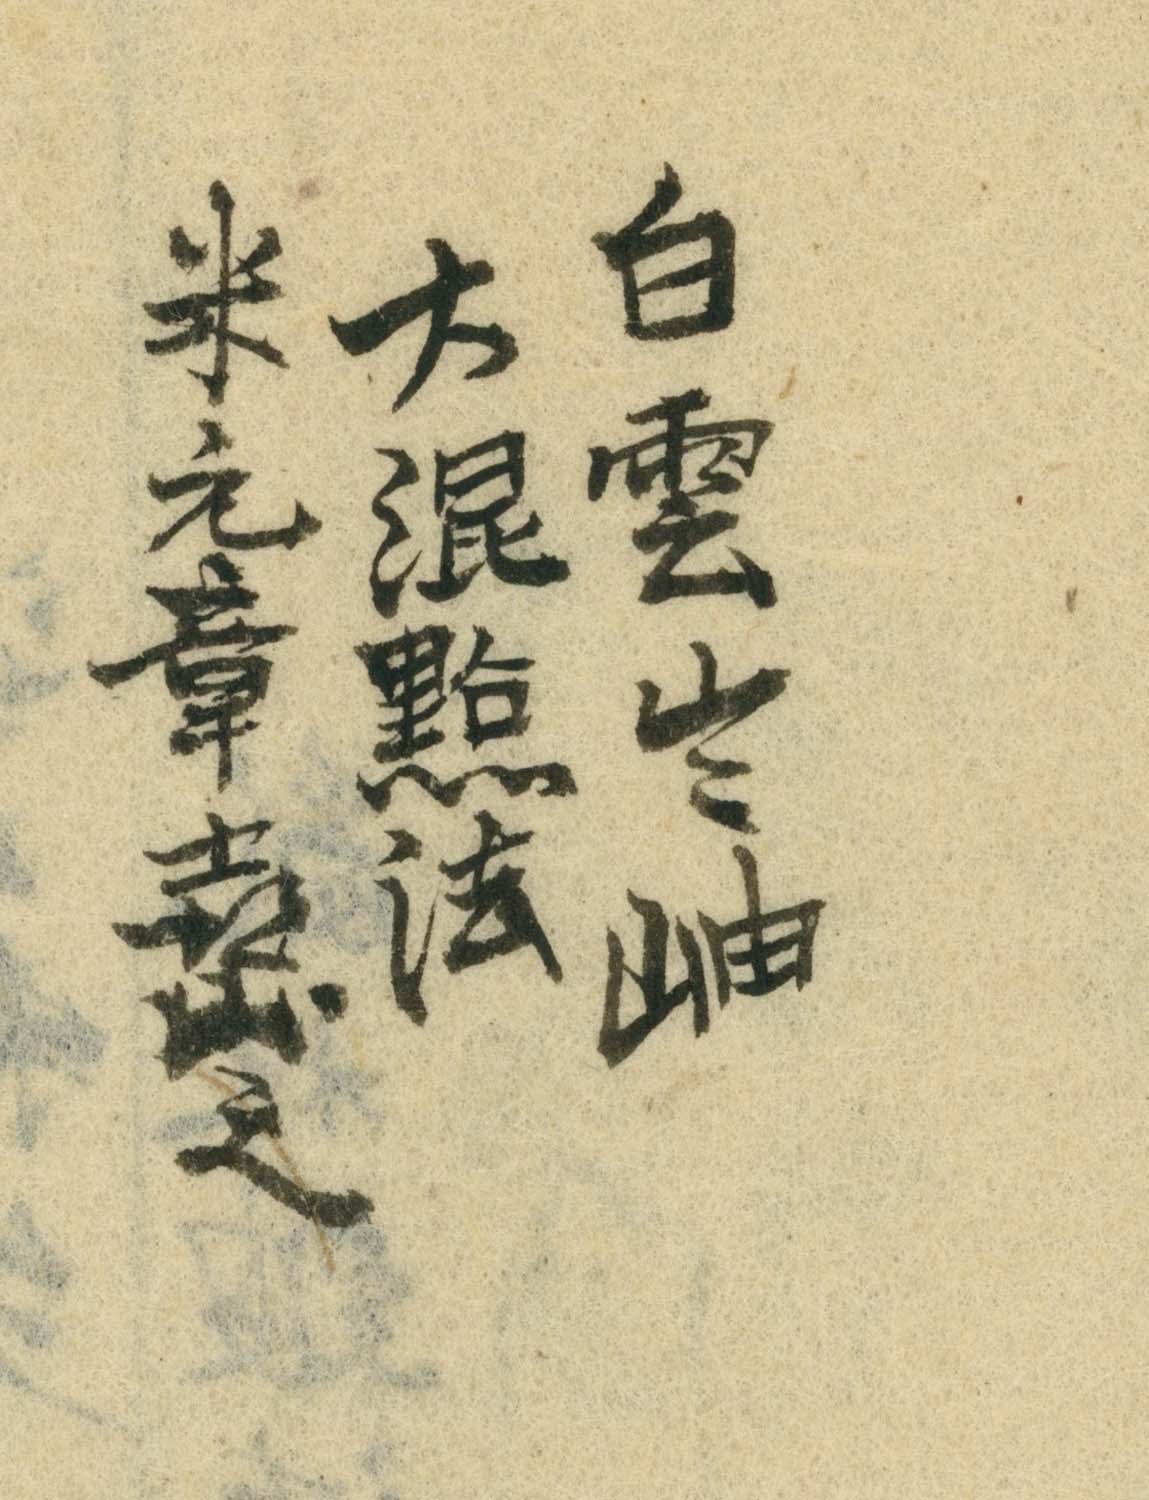 白雲出岫
大混點法
米元章之